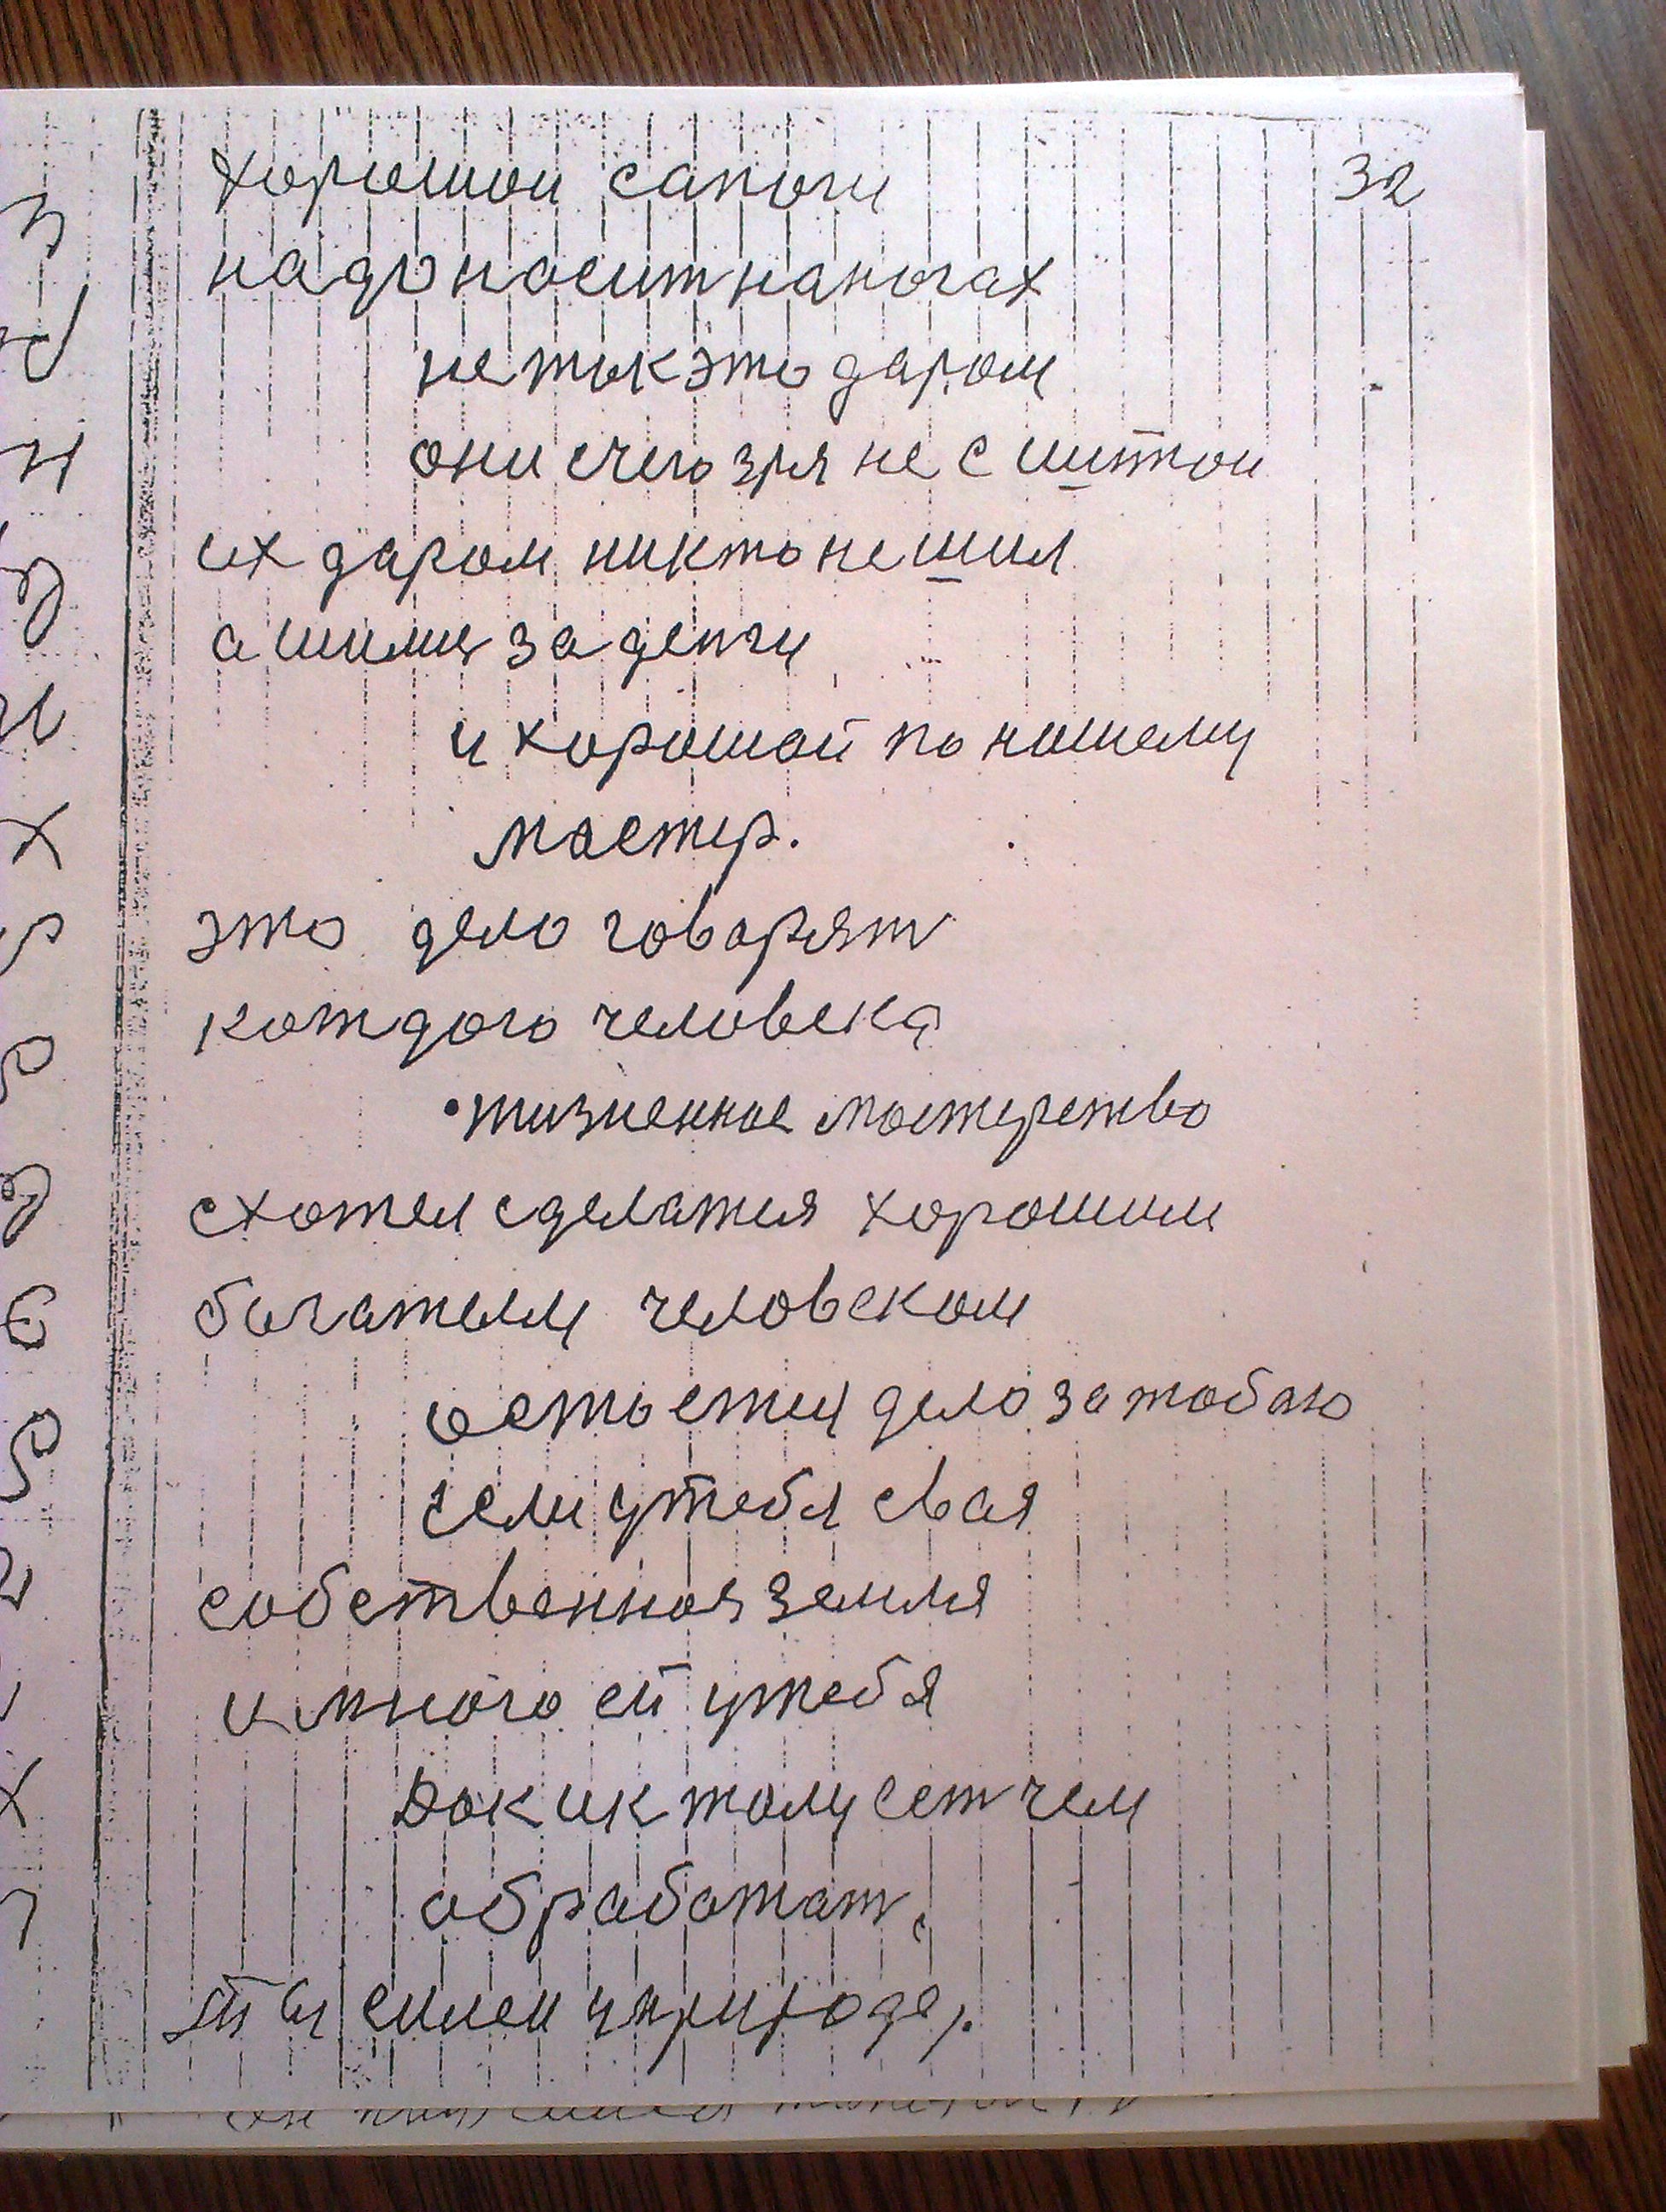 32
хорошои сапоги
надо носит на ногах
не так это даром
они счего зря не сшитои
их даром никто не шил
а шили за денги
и хорошой по нашему
мастер.
это дело говорят
кождого человека
жизненное мастерство
схотел сделатся хорошим
богатым человеком
остоется дело за тобаю
если у тебя свая
собственноя земля
и много ей у тебя
Дак и к тому сет чем
обработат,
ты силеи у природе,.